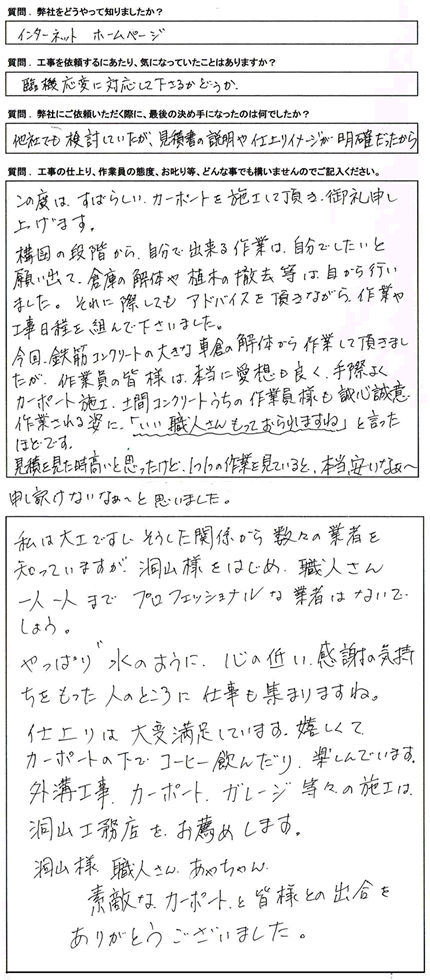 質問．弊社をどうやって知りましたか？
インターネット ホームページ
質問．工事を依頼するにあたり、気になっていたことはありますか？
臨機応変に対応して下さるかどうか.
質問．弊社にご依頼いただく際に、最後の決め手になったのは何でしたか？
他社でも検討していたが、見積書の説明や仕上りイメージが明確だったから
質問．工事の仕上り、作業員の態度、お叱り等、どんな事でも構いませんのでご記入ください。
この度は、すばらしい、カーポートを施工して頂き、御礼申し
上げます。
構図の段階から、自分で出来る作業は、自分でしたいと
願い出て、倉庫の解体や植木の撤去等は自から行い
ました。それに際しても アドバイスを頂きながら、作業や
工事日程を組んで下さいました。
今回、鉄筋コンクリートの大きな車倉の解体から作業して頂きまし
たが、作業員の皆様は、本当に愛想も良く、手際よく
カーポート施工、土間コンクリートうちの作業員様も誠心誠意
作業される姿に、「いい職人さんもっておられますね」と言った
ほどです。
見積を見た時高いと思ったけど、1つ1つの作業を見ていると、本当、安いなぁ〜
申し訳けないなぁ〜と思いました。
私は大工ですし そうした関係から 数々の業者を
知っていますが 洞山様をはじめ、職人さん
一人一人まで プロフェッショナルな業者はないで
しょう。
やっぱり 水のように、心の近い、感謝の気持
ちをもった人のところに 仕事も集まりますね。
仕上りは 大変満足しています。嬉しくて
カーポートの下で コーヒー飲んだり、楽しんでいます。
外溝工事、カーポート、ガレージ等々の施工は、
洞山工務店を、お薦めします。
洞山様、職人さん、あやちゃん、
素敵な カーポートと皆様との出合を
ありがとう ございました。